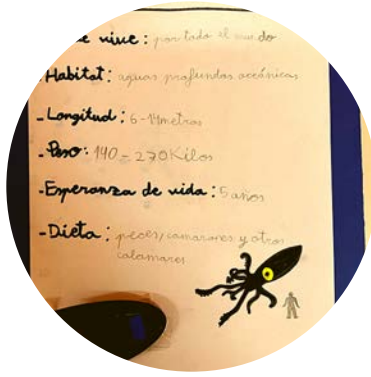 vive: por todo el mundo
- Habitat: aguas profundas oceánicas
- Longitud: 6-14metros
- Peso: 140-270Kilos
- Esperanza de vida: 5 años
- Dieta: peces, camarones y otros
calamares